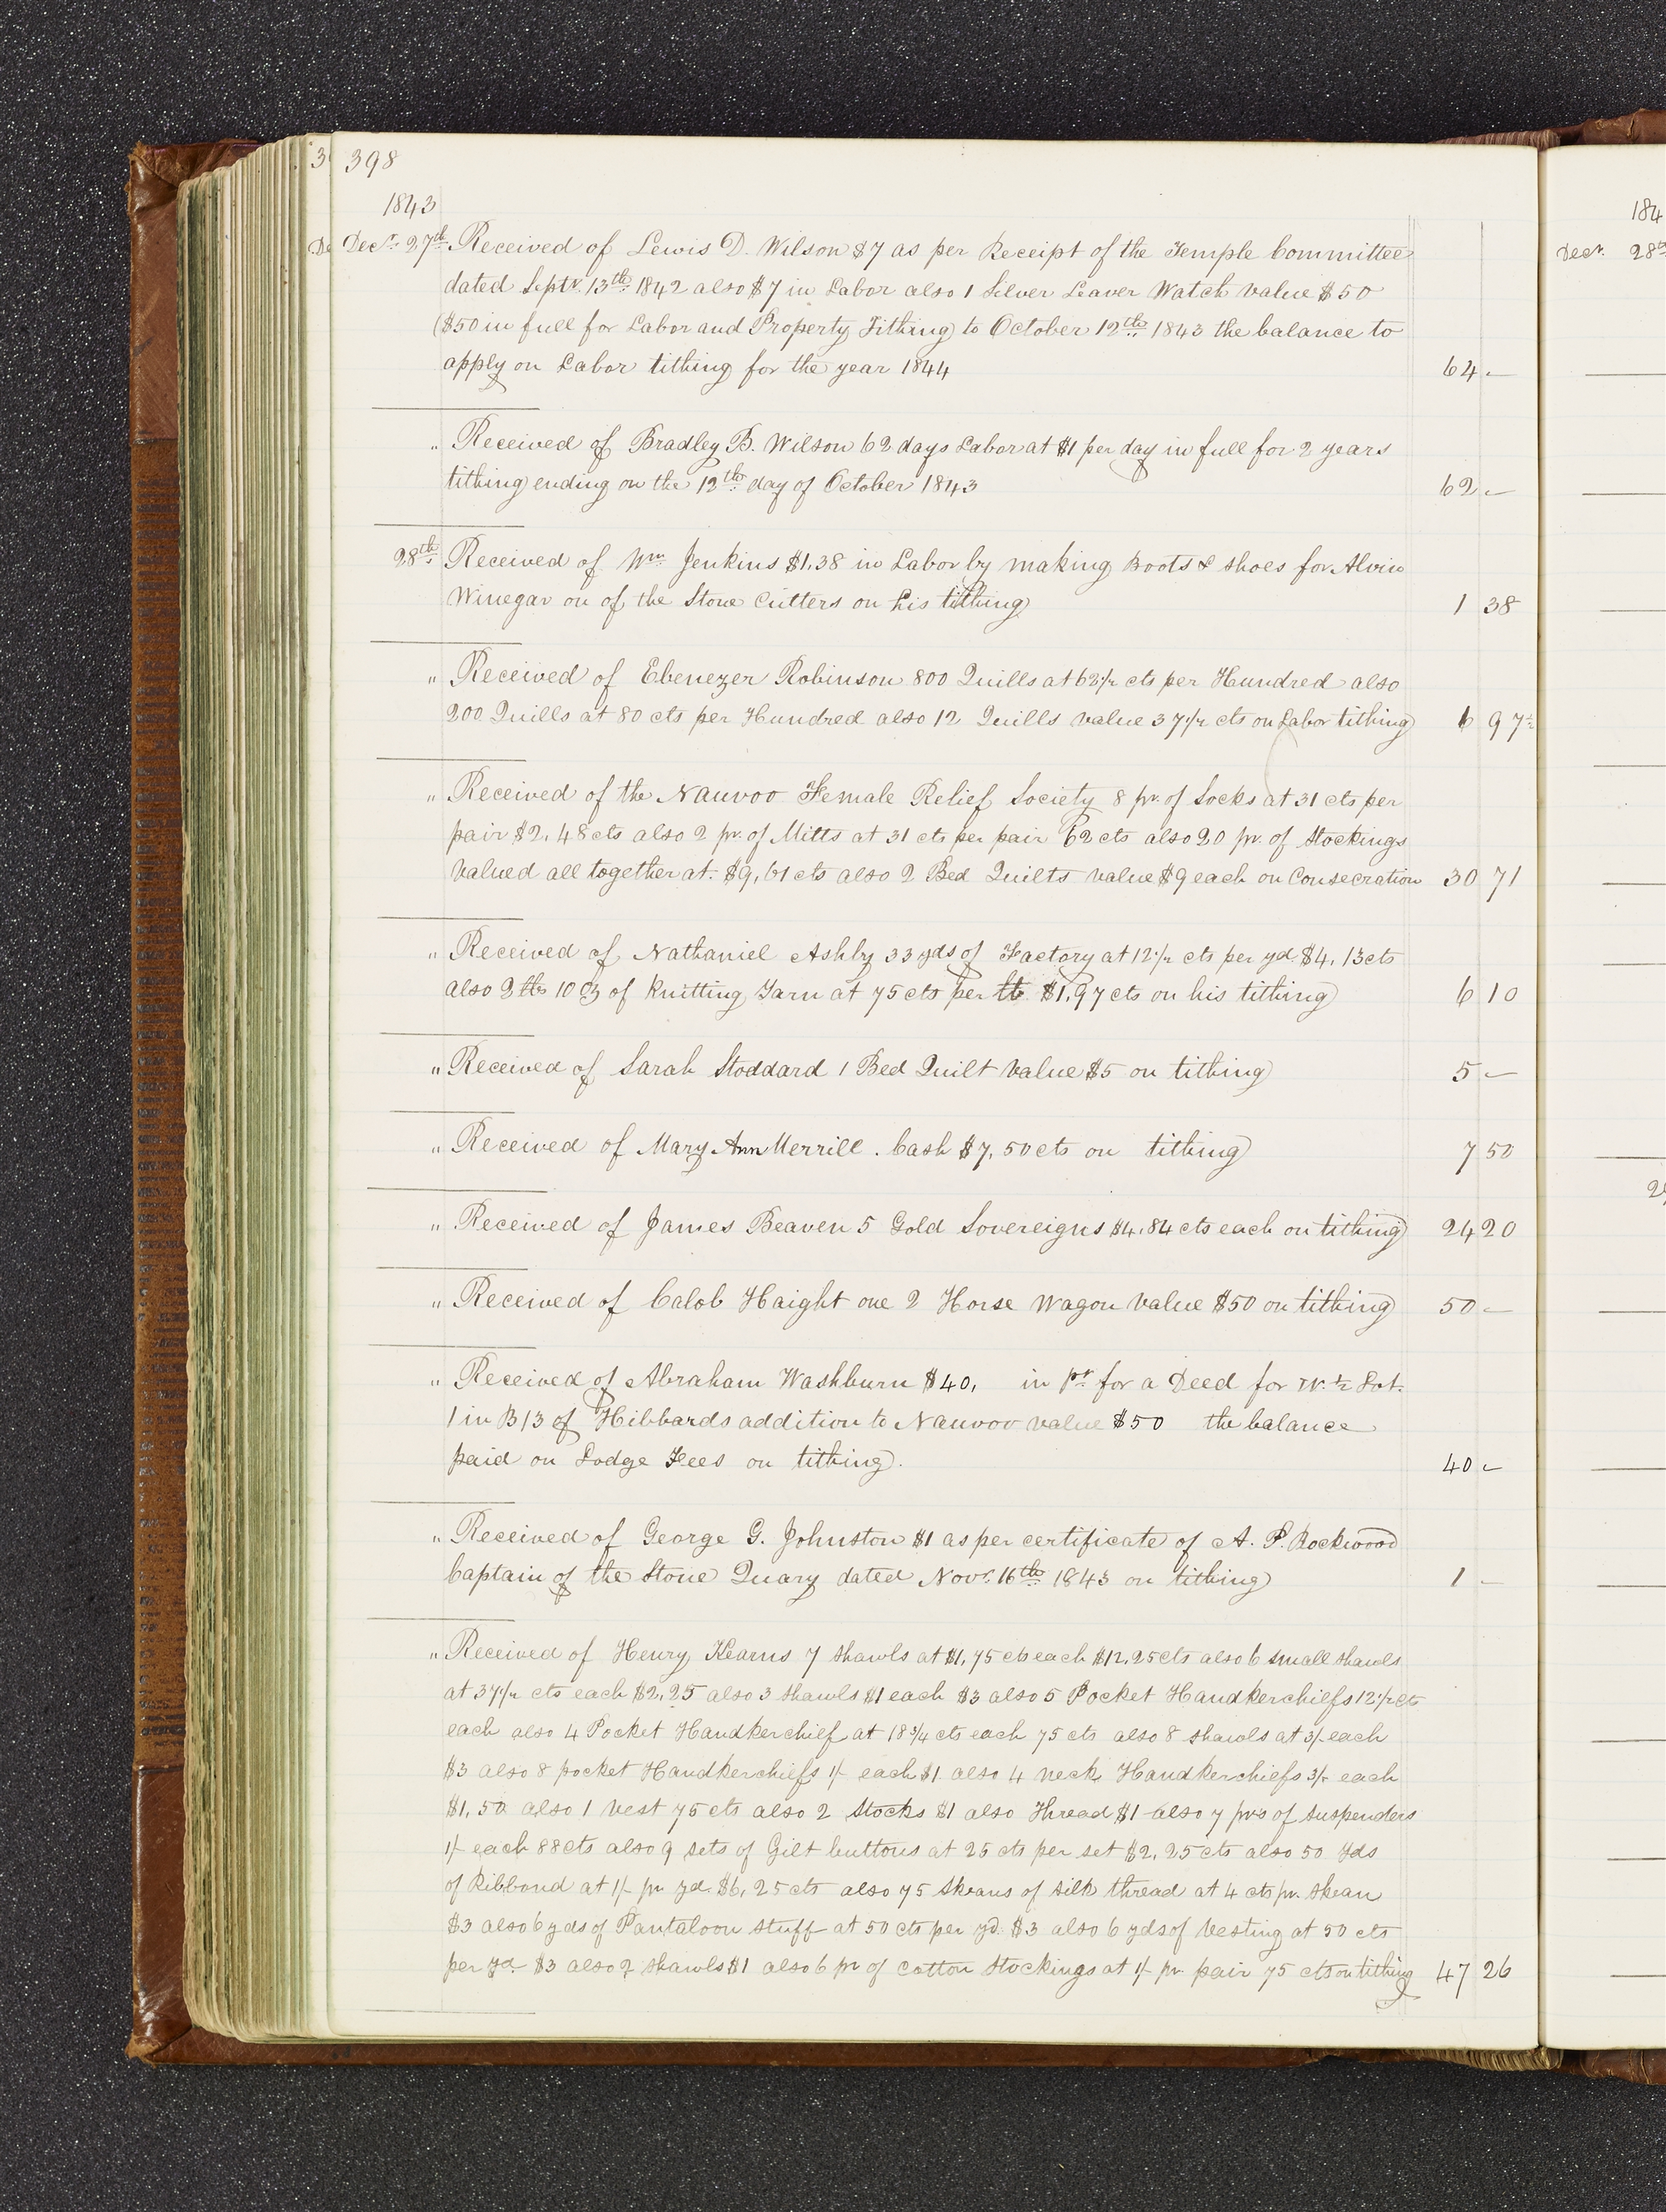 3 398
1843
De Decr. 27th. Received of Lewis D. Wilson $7 as per Receipt of the Temple Committee
dated Septr. 13th. 1842 also $7 in Labor also 1 Silver Leaver Watch value $50
($50 in full for Labor and Property Tithing to October 12th. 1843 the balance to
apply on Labor tithing for the year 1844 64 -
" Received of Bradley B. Wilson 62 days Labor at $1 per day in full for 2 years
tithing ending on the 12th. day of October 1843 62 -
28th. Received of Wm. Jenkins $1.38 in Labor by making Boots & shoes for Alvin
Winegar on of the Stone Cutters on his tithing 1 38
" Received of Ebenezer Robinson 800 Quills at 62 1/2 cts per Hundred also
200 Quills at 80 cts per Hundred also 12 Quills value 37 1/2 cts on Labor tithing 6 97 1/2
" Received of the Nauvoo Female Relief Society 8 pr. of Socks at 31 cts per
pair $2.48 cts also 2 pr. of Mitts at 31 cts per pair 62 cts also 20 pr. of Stockings
Valued all together at. $9,61 cts also 2 Bed Quilts value $9 each on Consecration 30 71
" Received of Nathaniel Ashby 33 yds of Factory at 12 1/2 cts per yd. $4.13 cts
also 2 lbs 10 oz of Knitting Yarn at 75 cts per lb $1.97 cts on his tithing 6 10
" Received of Sarah Stoddard 1 Bed Quilt Value $5 on tithing 5 -
" Received of Mary Ann Merrill. Cash $7.50 cts on tithing 7 50
" Received of James Beaven 5 Gold Sovereigns $4.84 cts each on tithing 24 20
" Received of Caleb Haight one 2 Horse Wagon Value $50 on tithing 50 -
" Received of Abraham Washburn $40. in pt. for a Deed for W. 1/2 Lot.
1 in B 13 of Hibbards addition to Nauvoo value $50 the balance
paid on Lodge Fees on tithing. 40 -
" Received of George G. Johnston $1 as per certificate of A. P. Rockwood
Captain of the Stone Quary dated Novr. 16th. 1843 on tithing 1 -
" Received of Henry Kearns 7 shawls at $1.75 cts each $12.25 cts also 6 small shawls
at 37 1/2 cts each $2.25 also 3 shawls $1 each $3 also 5 Pocket Handkerchiefs 12 1/2 cts
each also 4 Pocket Handkerchief at 18 3/4 cts each 75 cts also 8 shawls at 3/- each
$3 also 8 pocket Handkerchiefs 1/- each $1. also 4 neck Handkerchiefs 3/- each
$1.50 also 1 Vest 75 cts also 2 Stocks $1 also Thread $1 also 7 prs of suspenders
1/- each 88 cts also 9 sets of Gilt buttons at 25 cts per set $2.25 cts also 50 yds
of Ribbond at 1/- pr yd. $6.25 cts also 75 Skeans of silk thread at 4 cts pr. skean
$3 also 6 yds of Pantaloon stuff at 50 cts per yd. $3 also 6 yds of Vesting at 50 cts
per yd. $3 also 2 shawls $1 also 6 pr of cotton stockings at 1/- pr. pair 75 cts on tithing 47 26
184
Decr. 28th
29